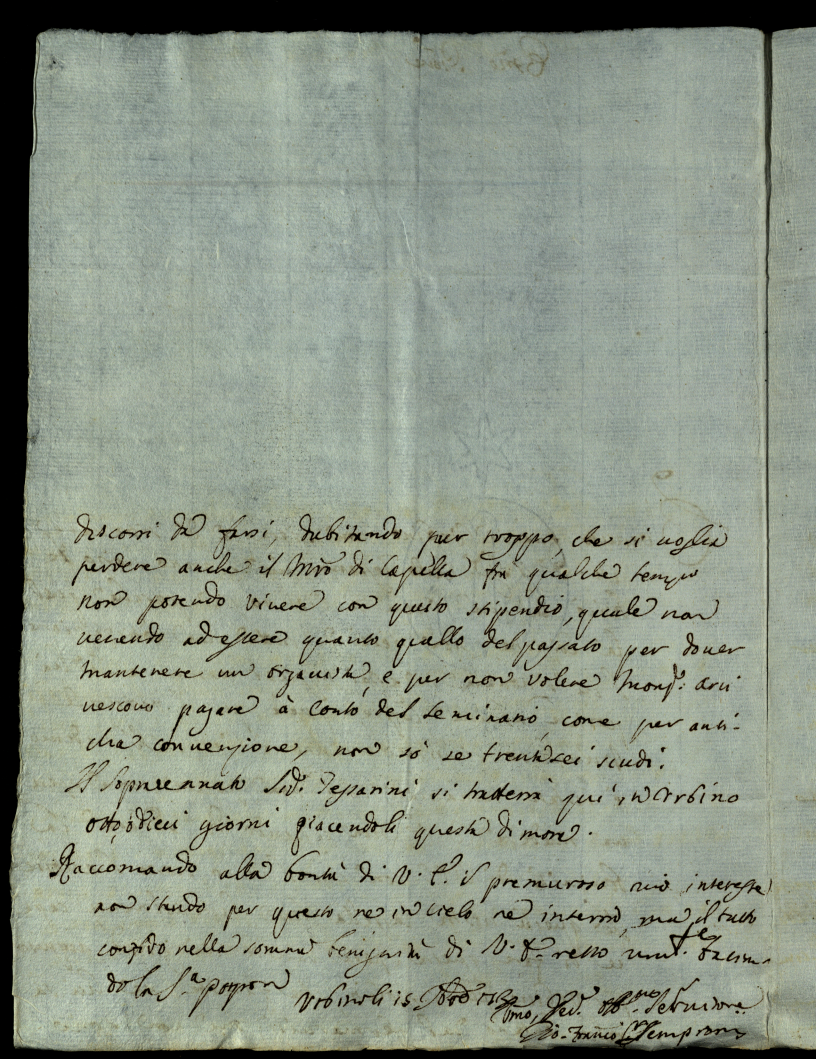 discorsi da farsi, dubitando pur troppo, che si voglia
perdere anche il Mro di Capella fra qualche tempo
non potendo vivere con questo stipendio, quale non
venendo ad essere quanto quello del passato per dover
mantenere un organista, e per non volere Monsr. Arci
vescovo pagare à conto del seminario, come per anti-
cha convenzione, non sò se trentasei scudi.
Il sopracennato Sigr. Tessarini si tratterrà quì in Urbino
otto, ò dieci giorni piacendoli questa dimora.
Raccomando alla bontà di V. E. il premuroso mio interesse
non stando per questo ne in cielo ne in terra, ma il tutto
confido nella somma benignità di V. E. resto umte. bacian-
do la Sa. porpora
Urbino li 15
Umo, Devo. Obmo Servitore
Gio. Franco Semproni